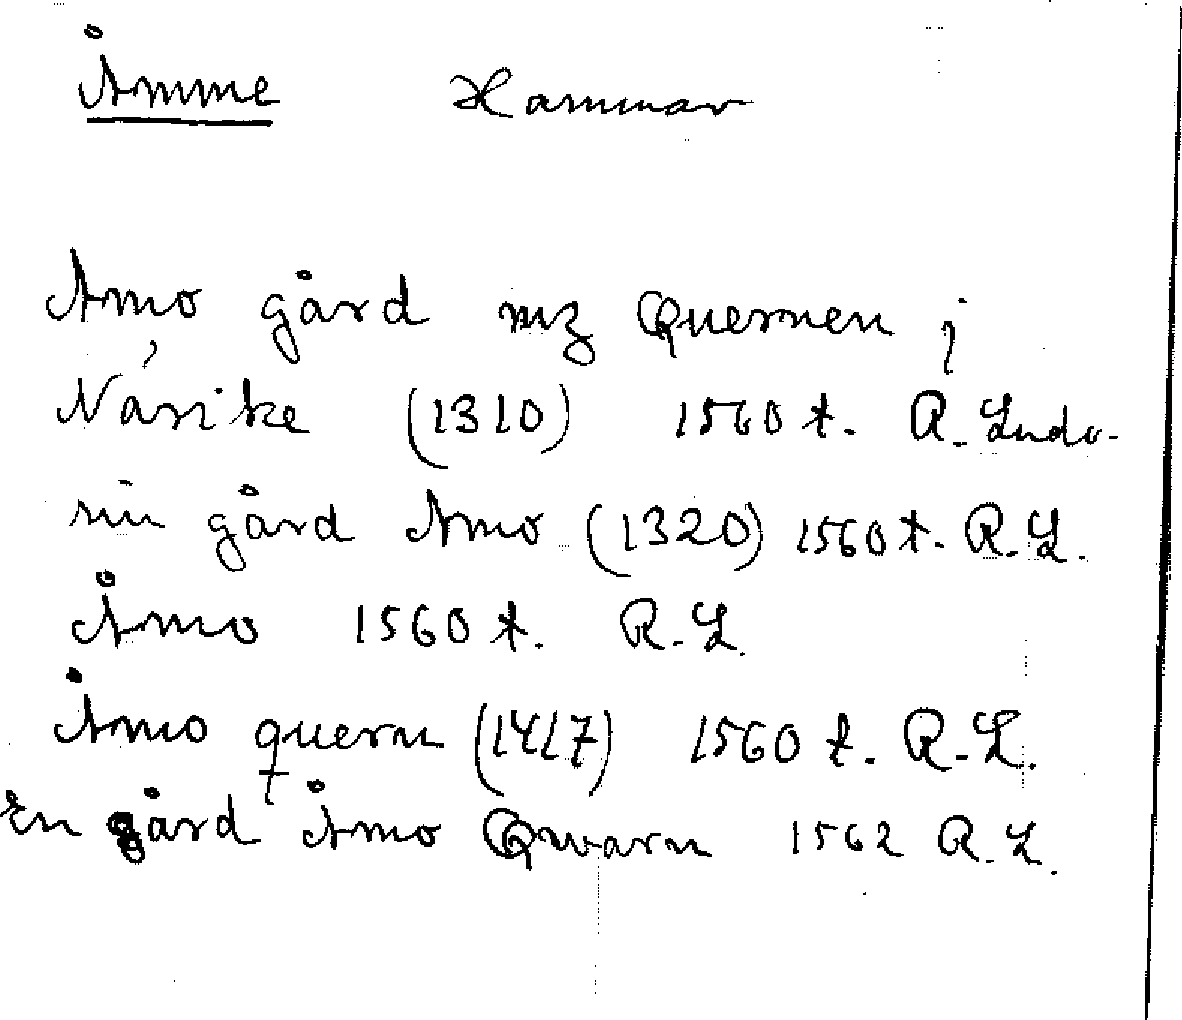 Åmme Hammar
Amo gård mz Quernen j
Närike (1310) 1560 t. R. Ludo-
min gård Amo (1320) 1560 t. R.L.
Åmo 1560 t. R.L.
Åmo quern (1417) 1560 t. R.L.
En gård Åmo Qwarn 1562 R.L.